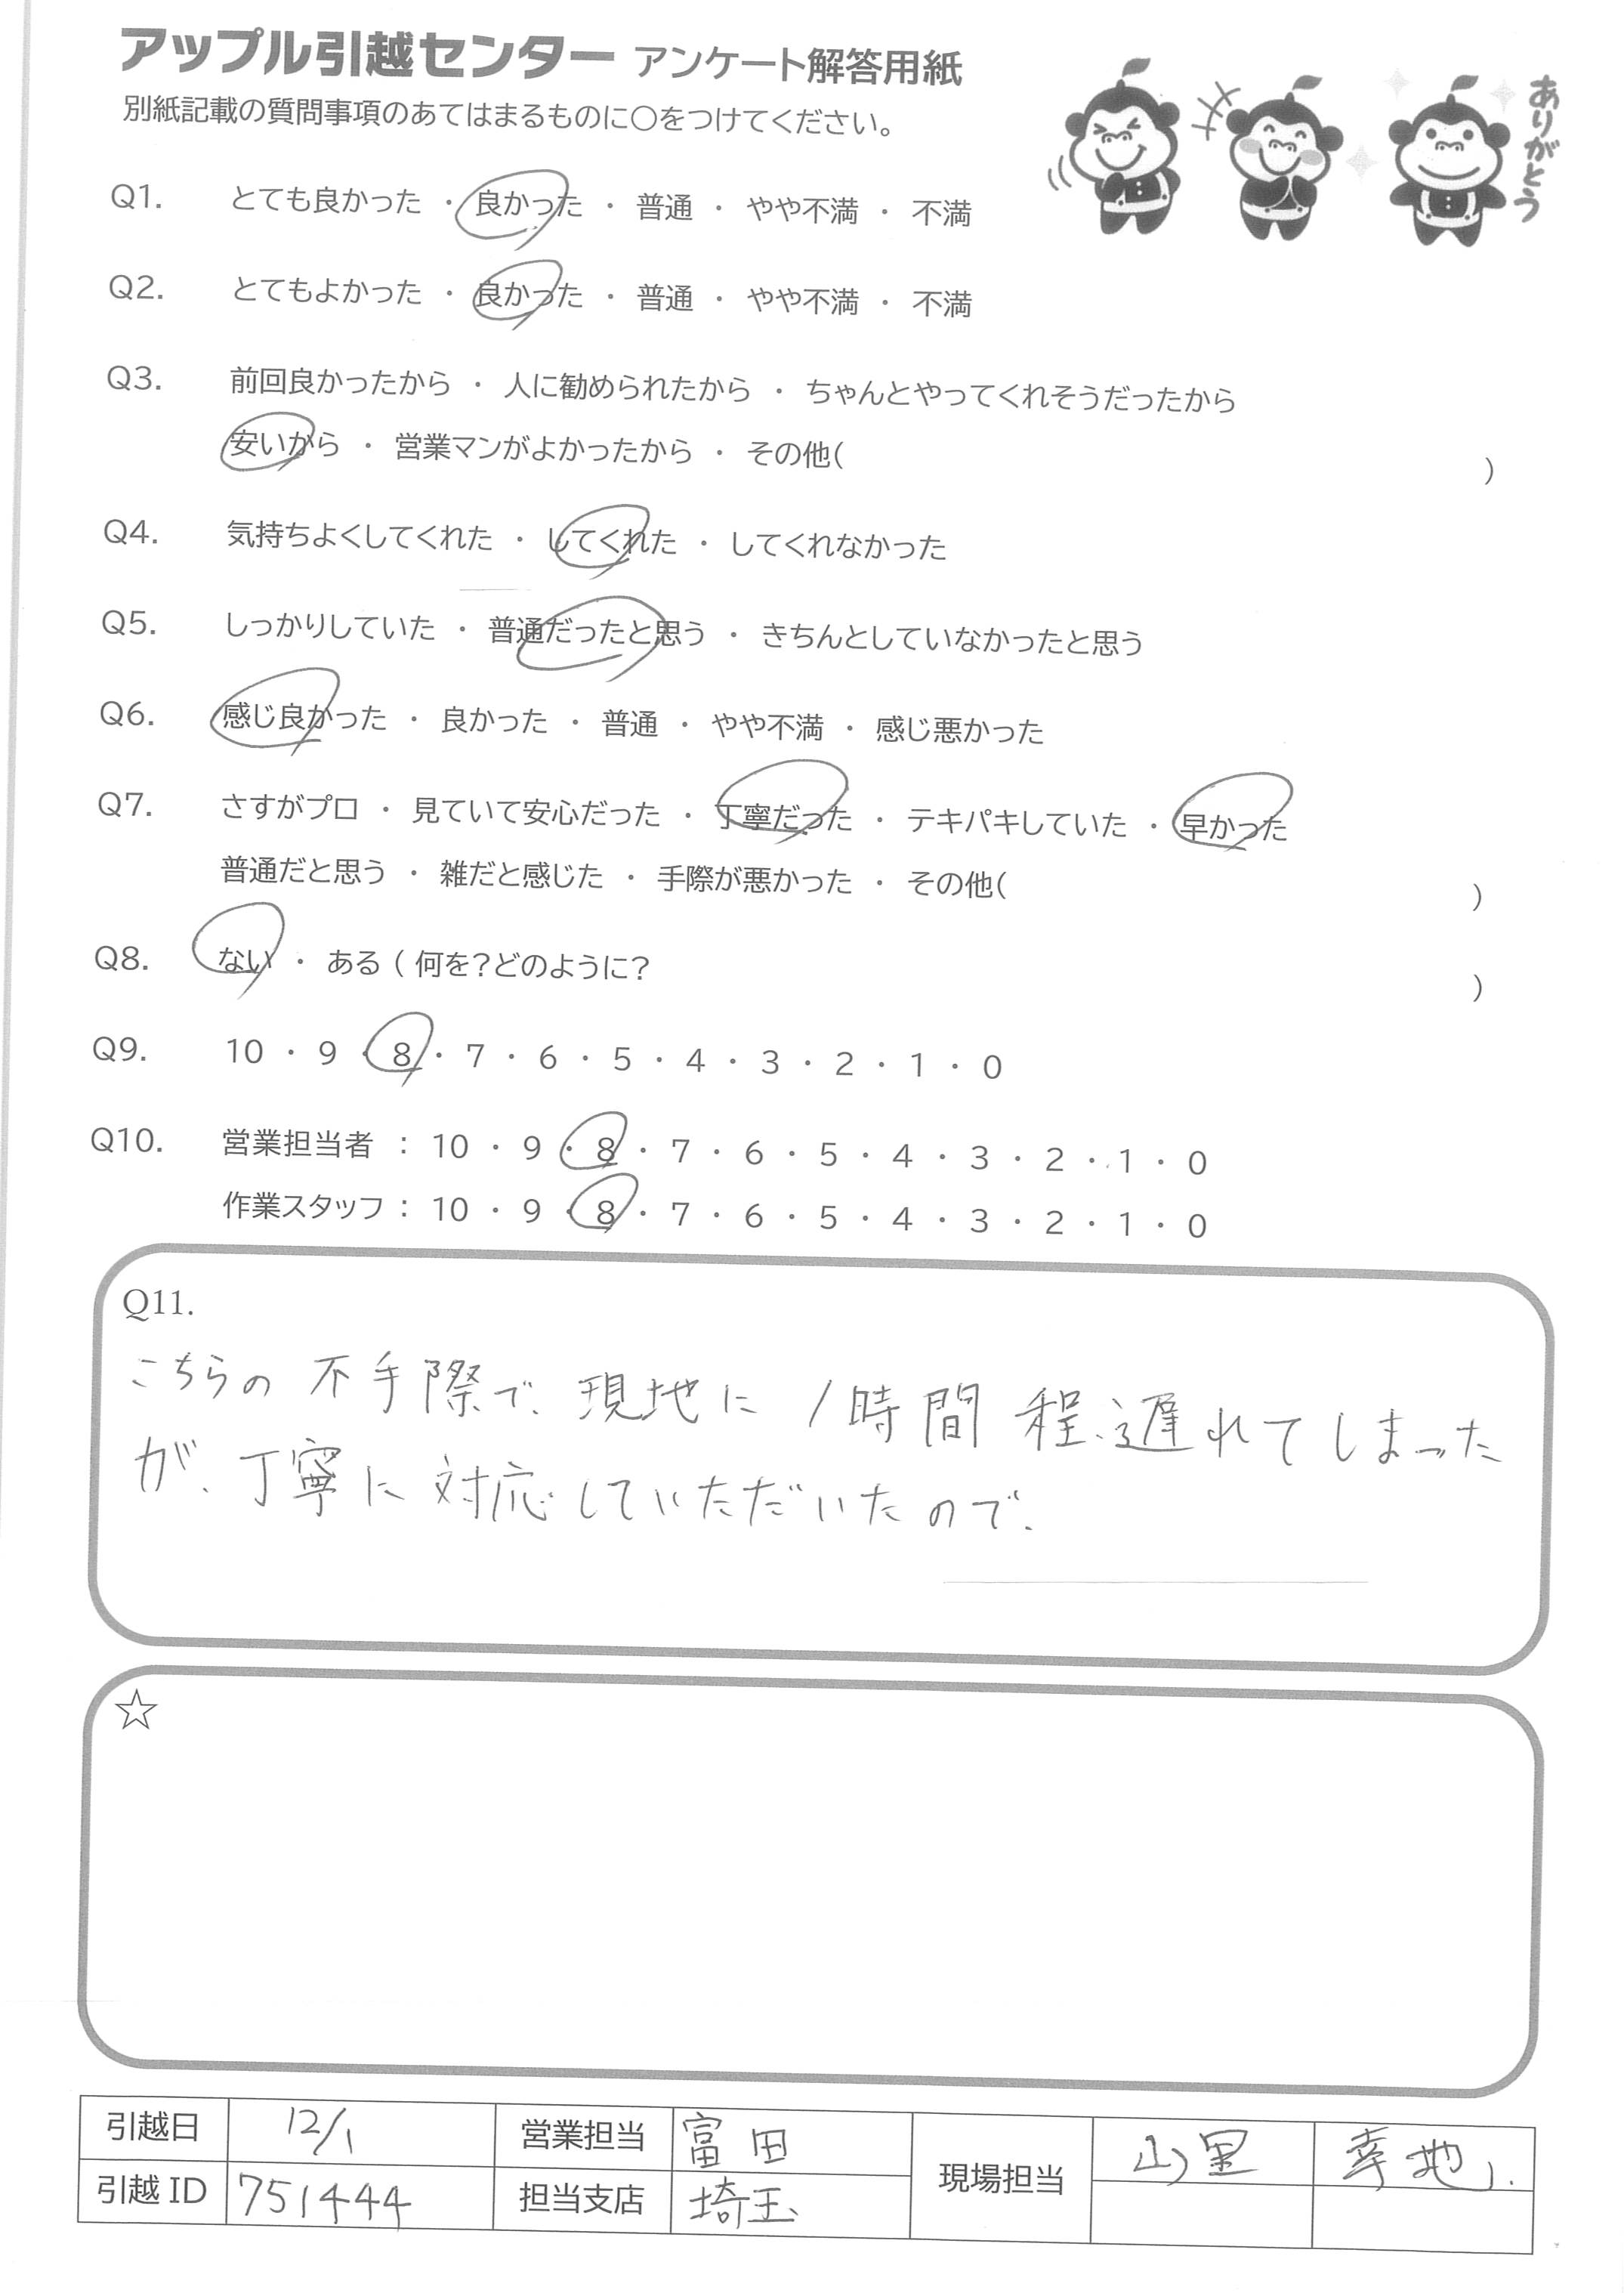 アップル引越センター アンケート解答用紙
別紙記載の質問事項のあてはまるものに○をつけてください。
ありがとう
Q1. とても良かった ・ 良かった ・ 普通 ・ やや不満 ・ 不満
Q2. とてもよかった ・ 良かった ・ 普通 ・ やや不満 ・ 不満
Q3. 前回良かったから ・ 人に勧められたから ・ ちゃんとやってくれそうだったから
安いから ・ 営業マンがよかったから ・ その他( )
Q4. 気持ちよくしてくれた ・ してくれた ・ してくれなかった
Q5. しっかりしていた ・ 普通だったと思う ・ きちんとしていなかったと思う
Q6. 感じ良かった ・ 良かった ・ 普通 ・ やや不満 ・ 感じ悪かった
Q7. さすがプロ ・ 見ていて安心だった ・ 丁寧だった ・ テキパキしていた ・ 早かった
普通だと思う ・ 雑だと感じた ・ 手際が悪かった ・ その他( )
Q8. ない ・ ある ( 何を?どのように? )
Q9. 10 ・ 9 ・ 8 ・ 7 ・ 6 ・ 5 ・ 4 ・ 3 ・ 2 ・ 1 ・ 0
Q10. 営業担当者 : 10 ・ 9 ・ 8 ・ 7 ・ 6 ・ 5 ・ 4 ・ 3 ・ 2 ・ 1 ・ 0
作業スタッフ : 10 ・ 9 ・ 8 ・ 7 ・ 6 ・ 5 ・ 4 ・ 3 ・ 2 ・ 1 ・ 0
Q11.
こちらの不手際で、現地に1時間程遅れてしまった
が、丁寧に対応していただいたので、
☆
引越日 12/1 営業担当 富田 現場担当 山里 幸地
引越ID 751444 担当支店 埼玉